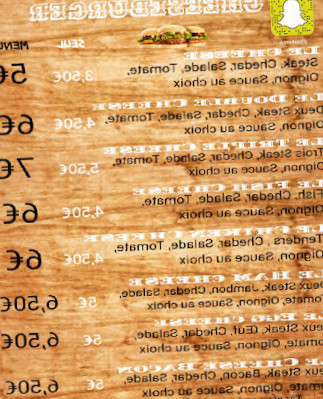 CHEESEBURGER
SEUL MENU
LE CHEESE
Steak, Chedar, Salade, Tomate, 3,50€ 5€
Oignon, Sauce au choix
LE DOUBLE CHEESE
Deux Steak, Chedar, Salade, Tomate, 4,50€ 6€
Oignon, Sauce au choix
LE TRIPLE CHEESE
Trois Steak, Chedar, Salade, Tomate, 5,50€ 7€
Oignon, Sauce au choix
LE FISH CHEESE
Fish, Chedar, Salade, Tomate, 4,50€ 6€
Oignon, Sauce au choix
LE CHICKEN CHEESE
Tenders , Chedar, Salade, Tomate, 4,50€ 6€
Oignon, Sauce au choix
LE HAM CHEESE
Deux Steak, Jambon, Chedar, Salade, 5€ 6,50€
Tomate, Oignon, Sauce au choix
LE EGG CHEESE
Deux Steak, Œuf, Chedar, Salade, 5€ 6,50€
Tomate, Oignon, Sauce au choix
LE CHEESE BACON
Deux Steak, Bacon, Chedar, Salade, 5€ 6,50€
Tomate, Oignon, Sauce au choix